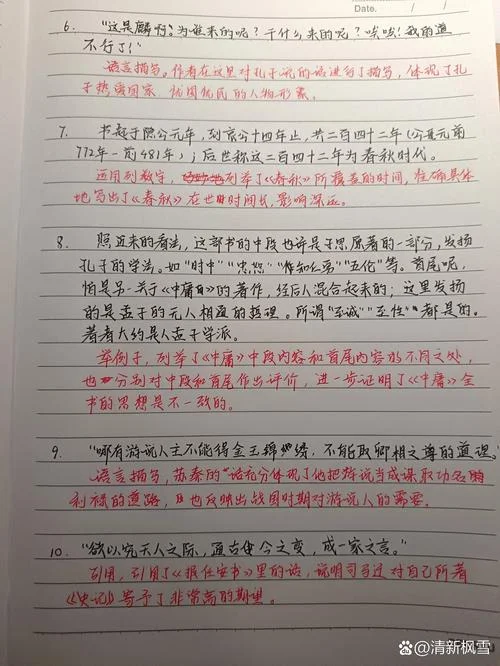 Date. / /
6. "这是麟啊。为谁来的呢?干什么来的呢?唉唉!我的道
不行了!"
语言描写。作者在这里对孔子说的话进行了描写,体现了孔
子热爱国家、忧国忧民的人物形象。
7. 书起于隐公元年,到哀公十四年止,共二百四十二年(公元前
772年-前481年);后世称这二百四十二年为春秋时代。
运用列数字,列举了《春秋》所横亘的时间,准确具体
地写出了《春秋》在世时间长,影响深远。
8. 照近来的看法,这部书的中段也许是子思原著的一部分,发扬
孔子的学说。如"时中""忠恕""知仁勇""五伦"等。首尾呢,
怕是另一关于《中庸》的著作,经后人混合起来的;这里发扬
的是孟子的天人相通的哲理。所谓"至诚""尽性"都是的。
著者大约是孟子学派。
举例子,列举了《中庸》中段内容和首尾内容的不同之处,
也分别对中段和首尾作出评价,进一步证明了《中庸》全
书的思想是不一致的。
9. "哪有游说人主不能得金玉锦绣,不能取卿相之尊的道理。"
语言描写,苏秦的话充分体现了他把游说当成谋取功名
利禄的道路,且也反映出战国时期对游说人的需要。
10. "欲以究天人之际,通古今之变,成一家之言。"
引用,引用了《报任安书》里的话,说明司马迁对自己所著
《史记》寄予了非常高的期望。
Bai百度 @清新枫雪